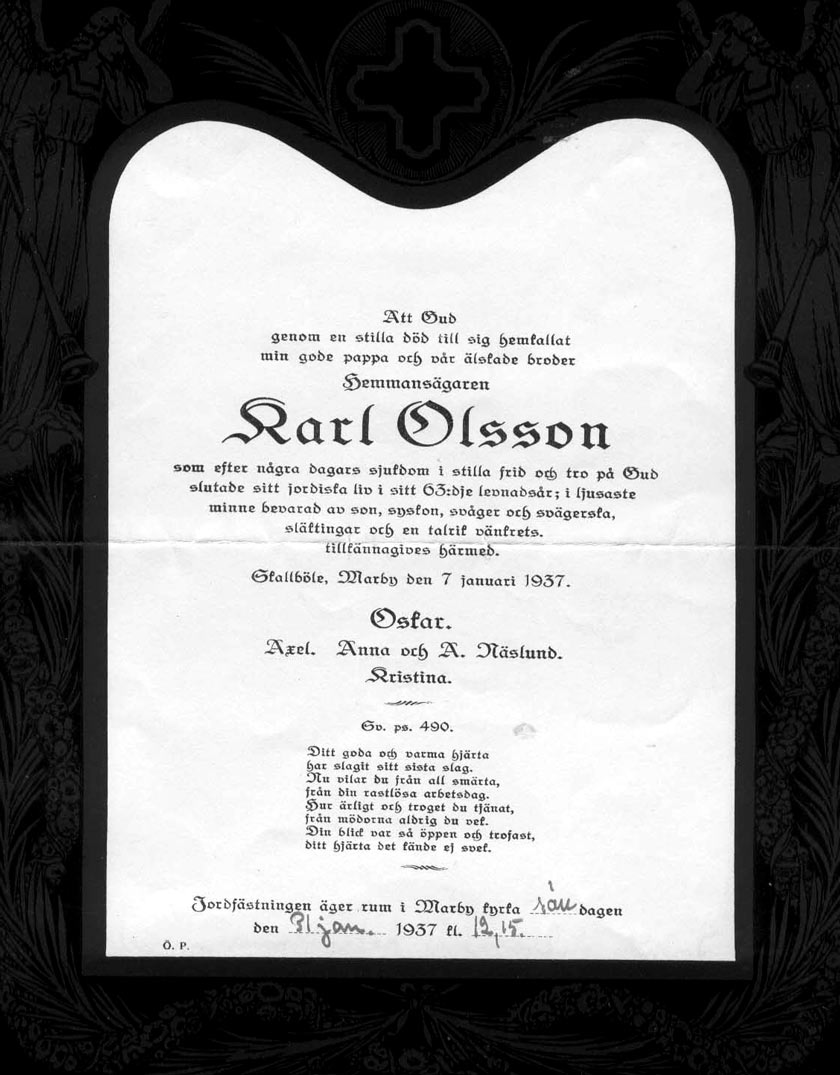 Att Gud
genom en stilla död till sig hemkallat
min gode pappa och vår älskade broder
Hemmansägaren
Karl Olsson
som efter några dagars sjukdom i stilla frid och tro på Gud
slutade sitt jordiska liv i sitt 63:dje levnadsår; i ljusaste
minne bevarad av son, syskon, svåger och svägerska,
släktingar och en talrik vänkrets.
tillkännagives härmed.
Skallböle, Marby den 7 januari 1937.
Oskar.
Axel. Anna och A. Näslund.
Kristina.
Sv. ps. 490.
Ditt goda och varma hjärta
har slagit sitt sista slag.
Nu vilar du från all smärta,
från din rastlösa arbetsdag.
Hur ärligt och troget du tjänat,
från mödorna aldrig du vek.
Din blick var så öppen och trofast,
ditt hjärta det kände ej svek.
Jordfästningen äger rum i Marby kyrka sön dagen
den 31 jan. 1937 kl. 12,15.
Ö. P.